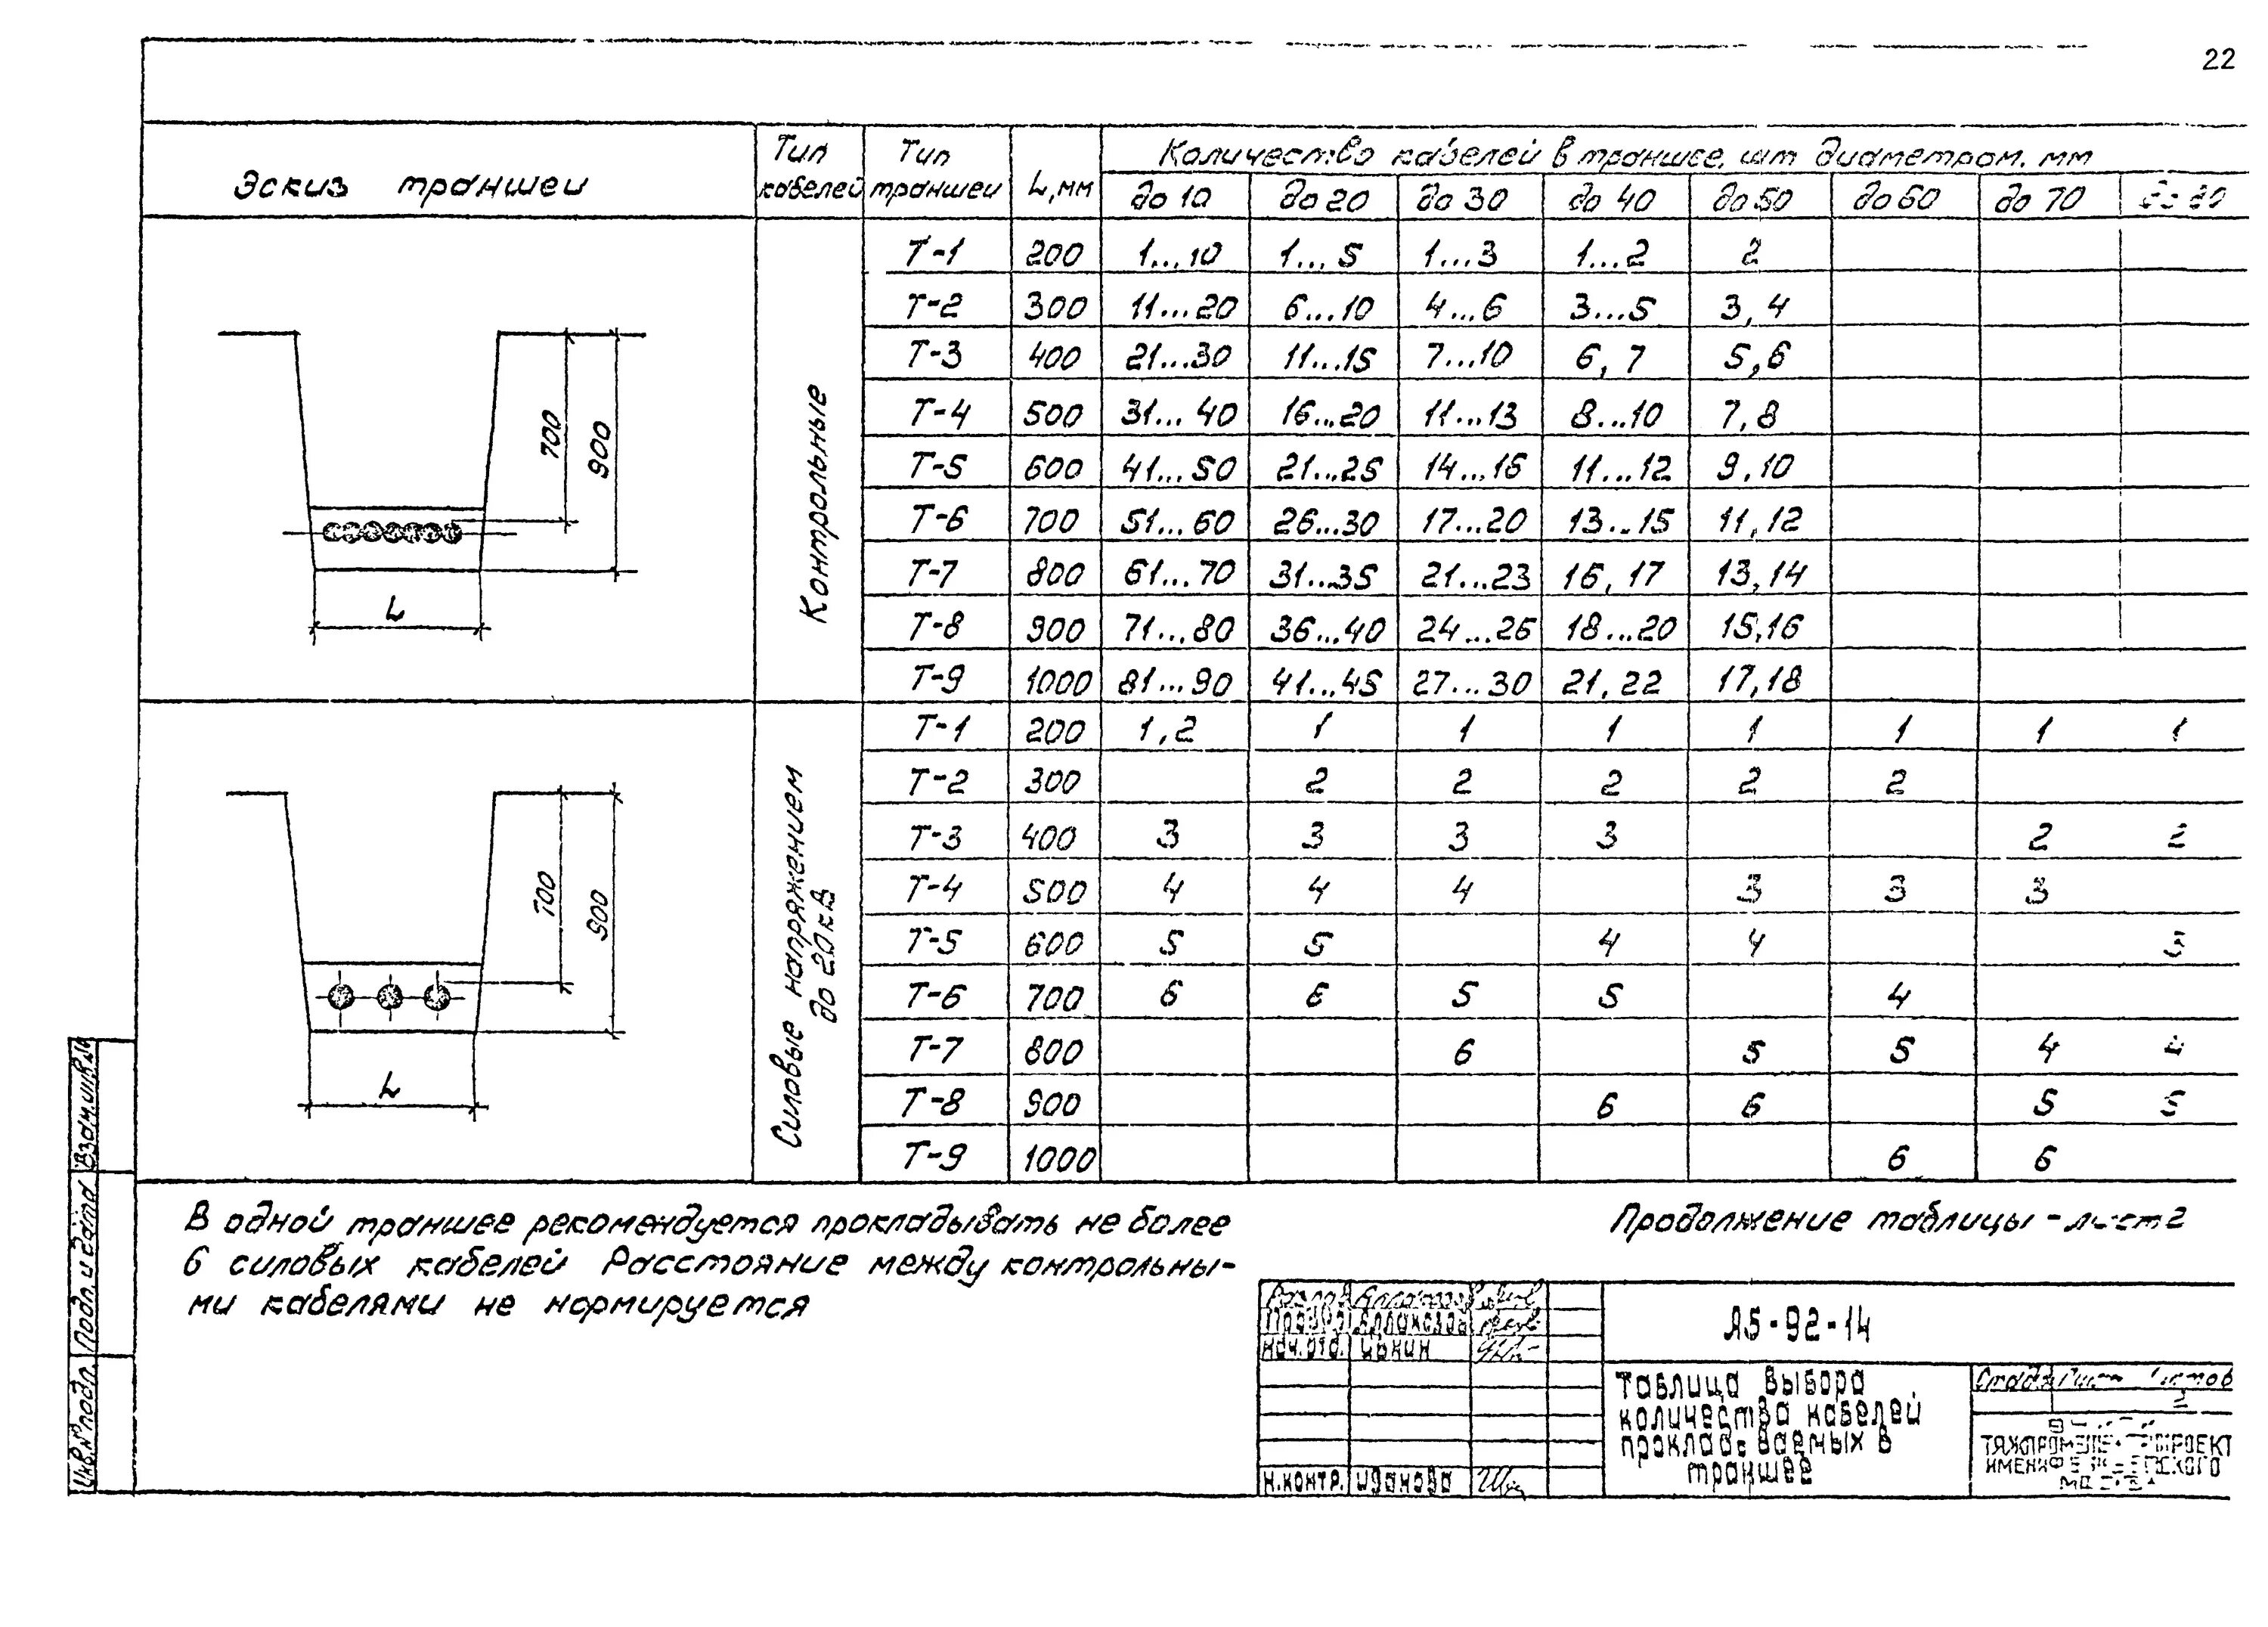 22
Эскиз траншеи
Тип кабелей
Тип траншеи
L, мм
Количество кабелей в траншее, шт диаметром, мм
до 10 до 20 до 30 до 40 до 50 до 60 до 70 до 80
Контрольные
Т-1 200 1...10 1...5 1...3 1...2 2
Т-2 300 11...20 6...10 4...6 3...5 3,4
Т-3 400 21...30 11...15 7...10 6,7 5,6
Т-4 500 31...40 16...20 11...13 8...10 7,8
Т-5 600 41...50 21...25 14...16 11...12 9,10
Т-6 700 51...60 26...30 17...20 13...15 11,12
Т-7 800 61...70 31...35 21...23 16,17 13,14
Т-8 900 71...80 36...40 24...26 18...20 15,16
Т-9 1000 81...90 41...45 27...30 21,22 17,18
700
900
L
Силовые напряжением
до 20 кВ
Т-1 200 1,2 1 1 1 1 1 1 1
Т-2 300 2 2 2 2 2
Т-3 400 3 3 3 3 2 2
Т-4 500 4 4 4 3 3 3
Т-5 600 5 5 4 4 3
Т-6 700 6 6 5 5 4
Т-7 800 6 5 5 4 4
Т-8 900 6 6 5 5
Т-9 1000 6 6
700
900
L
В одной траншее рекомендуется прокладывать не более
6 силовых кабелей Расстояние между контрольны-
ми кабелями не нормируется
Продолжение таблицы - лист 2
А5-92-14
Нач.отд.
Н.контр. Иванова
Таблица выбора
количества кабелей
прокладываемых в
траншее
Стадия Лист Листов
2
ИМЕНИ
Взам.инв.№
Подп. и дата
Инв.№ подл.